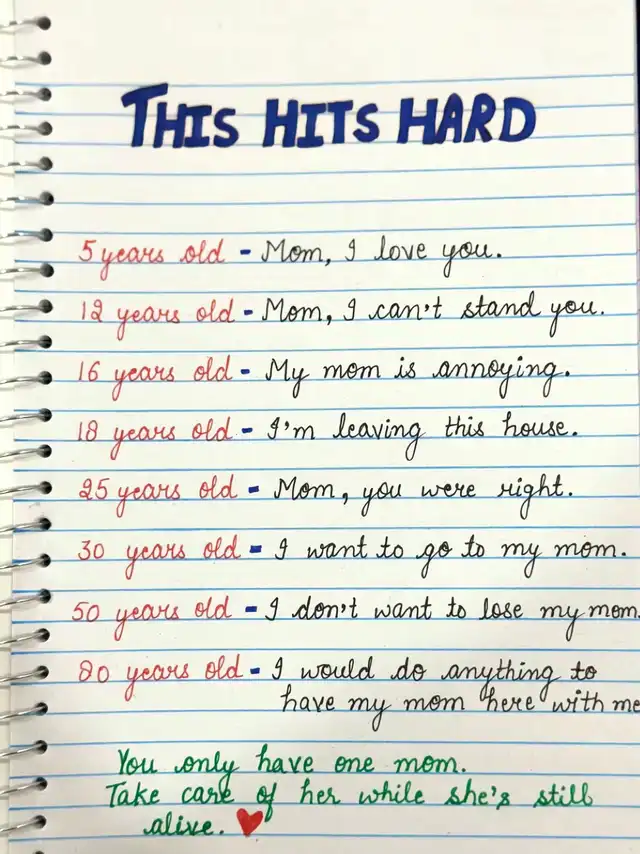 THIS HITS HARD
5 years old - Mom, I love you.
12 years old - Mom, I can't stand you.
16 years old - My mom is annoying.
18 years old - I'm leaving this house.
25 years old - Mom, you were right.
30 years old - I want to go to my mom.
50 years old - I don't want to lose my mom.
80 years old - I would do anything to
have my mom here with me
You only have one mom.
Take care of her while she's still
alive. ❤